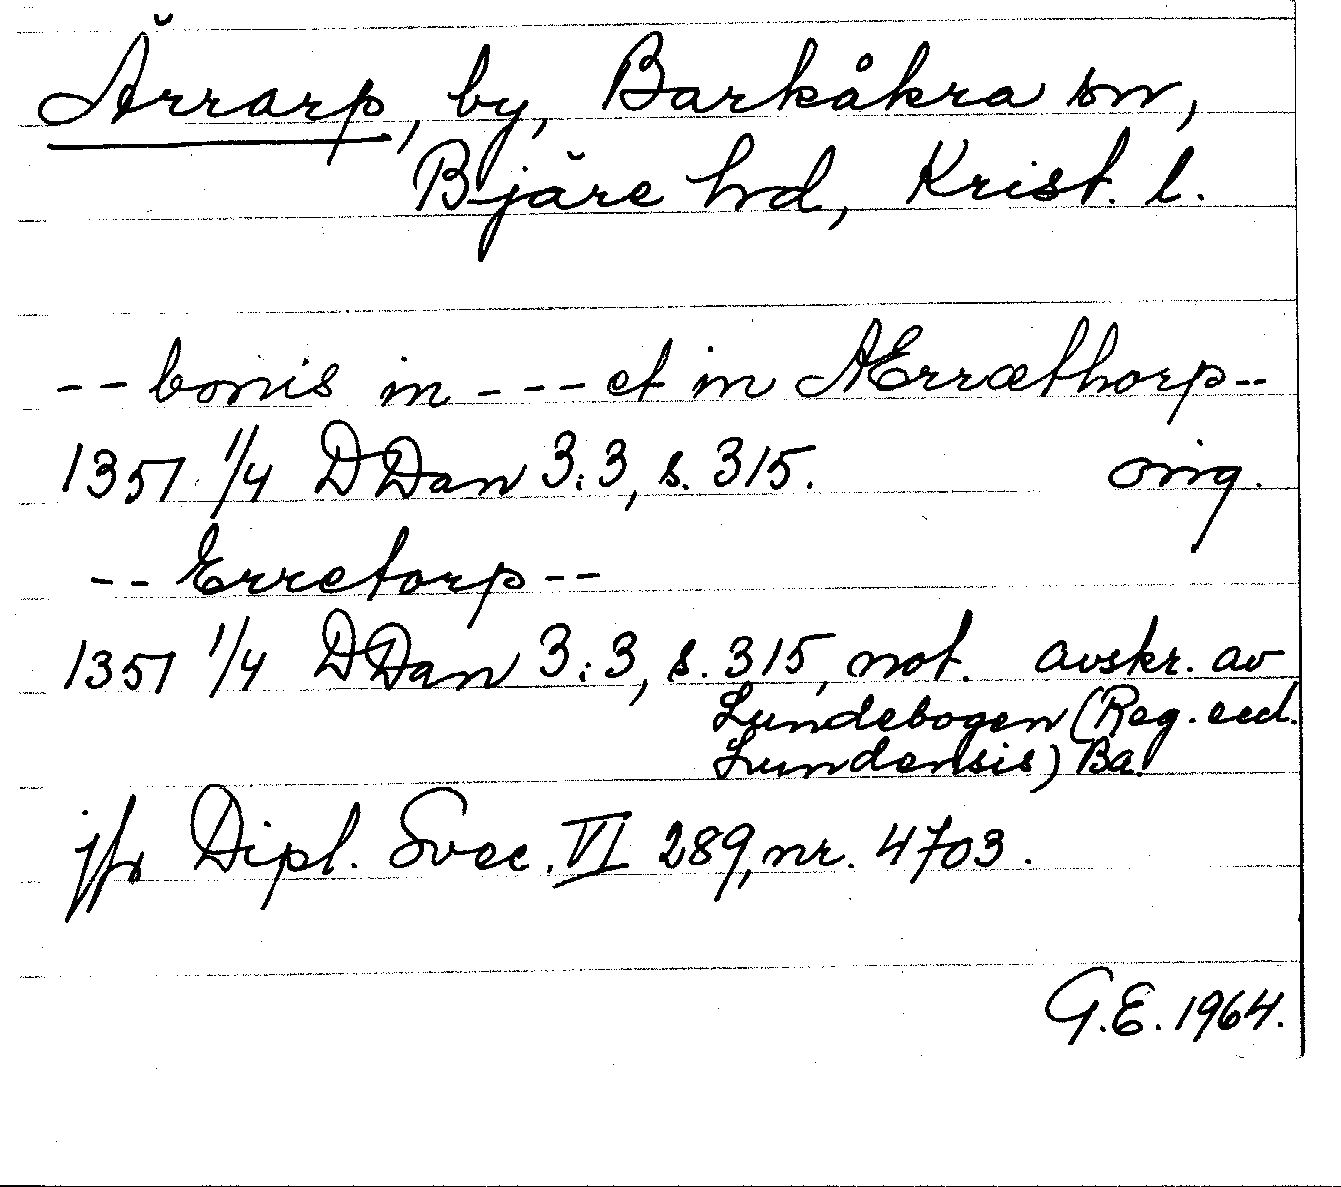 Ärrarp, by, Barkåkra sn,
Bjäre hd, Krist. l.
-- bonis in --- et in Ærræthorp --
1351 1/4 DDan 3:3, s. 315. orig.
-- Erretorp --
1351 1/4 DDan 3:3, s. 315, not. avskr. av
Lundebogen (Reg. eccl.
Lundensis) Ba.
jfr Dipl. Svec. VI 289, nr. 4703.
G.E. 1964.